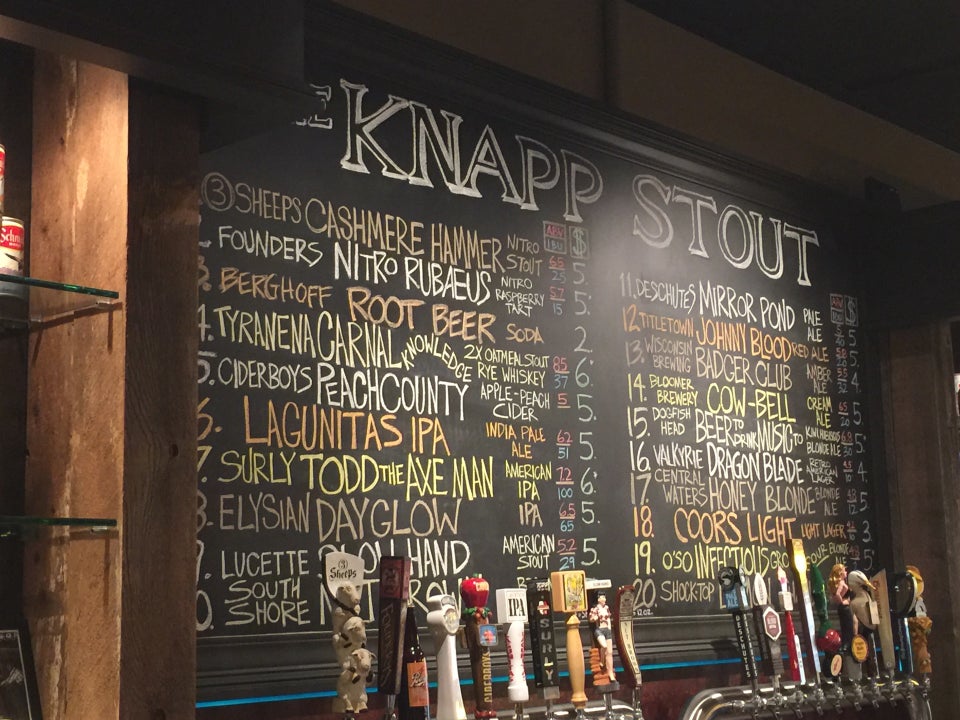 KNAPP STOUT
ABV IBU $
3 SHEEPS CASHMERE HAMMER NITRO STOUT 6.5 25 5.
FOUNDERS NITRO RUBAEUS NITRO RASPBERRY TART 5.7 15 5.
3. BERGHOFF ROOT BEER SODA 2.
4. TYRANENA CARNAL KNOWLEDGE 2X OATMEAL STOUT RYE WHISKEY 8.5 37 6.
5. CIDERBOYS PEACH COUNTY APPLE-PEACH CIDER 5 5.
6. LAGUNITAS IPA INDIA PALE ALE 6.2 51 5.
7. SURLY TODD THE AXE MAN AMERICAN IPA 7.2 100 6.
8. ELYSIAN DAYGLOW IPA 6.5 65 5.
LUCETTE HAND AMERICAN STOUT 5.2 29 5.
SOUTH SHORE
ABV $
11. DESCHUTES MIRROR POND PALE ALE 5
12. TITLETOWN JOHNNY BLOOD RED ALE 5
13. WISCONSIN BREWING BADGER CLUB AMBER ALE 4
14. BLOOMER BREWERY COW-BELL CREAM ALE 5.
15. DOGFISH HEAD BEER TO DRINK MUSIC TO BLONDE ALE 6.8 30 5.
16. VALKYRIE DRAGON BLADE RETRO AMERICAN LAGER 4.
17. CENTRAL WATERS HONEY BLONDE BLONDE ALE 5.
18. COORS LIGHT LIGHT LAGER 3
19. O'SO INFECTIOUS GRO SOUR BLONDE ALE 5
20. SHOCK-TOP
12 OZ.
3 Sheeps
IPA
SURLY
DESCHUTES
CIDERBOYS
Schm